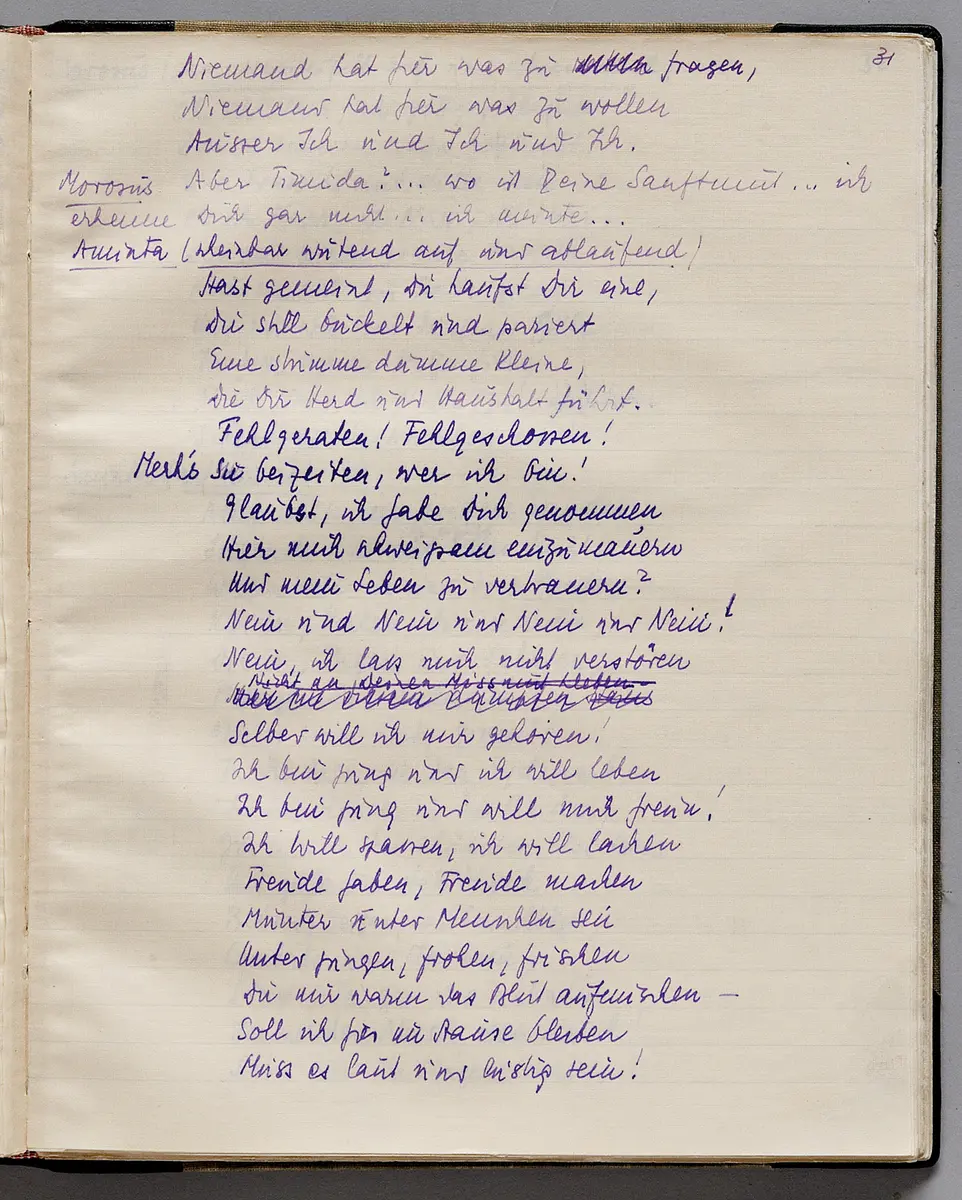 31
Niemand hat hier was zu fragen,
Niemand hat hier was zu wollen
Ausser Ich und Ich und Ich.
Morosus Aber Timida?... wo ist Deine Sanftmut... ich
erkenne Dich gar nicht... ich meinte...
Aminta (scheinbar wütend auf und ablaufend)
Hast gemeint, Du kaufst Dir eine,
Die still buckelt und pariert
Eine stumme dumme Kleine,
Die Dir Herd und Haushalt führt.
Fehlgeraten! Fehlgeschossen!
Merk's Du beizeiten, wer ich bin!
Glaubst, ich habe Dich genommen
Hier mich schweigsam einzumauern
Und mein Leben zu vertrauern?
Nein und Nein und Nein und Nein!
Nein, ich lass mich nicht verstören
Nicht an Deinen Missmut kleben
Selber will ich mir gehören!
Ich bin jung und ich will leben
Ich bin jung und will mich freun!
Ich will spassen, ich will lachen
Freude haben, Freude machen
Munter unter Menschen sein
Unter jungen, frohen, frischen
Die mir warm das Blut aufmischen —
Soll ich hier im Hause bleiben
Muss es laut und lustig sein!